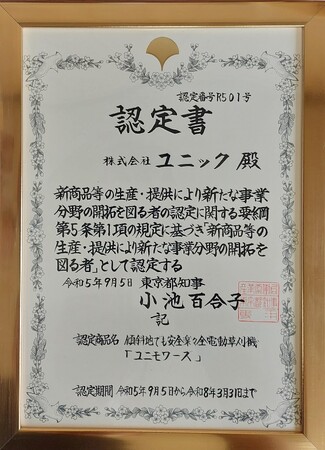 認定番号R501号
認定書
株式会社 ユニック 殿
新商品等の生産・提供により新たな事業
分野の開拓を図る者の認定に関する要綱
第5条第1項の規定に基づき「新商品等の
生産・提供により新たな事業分野の開拓を
図る者」として認定する
令和5年9月5日 東京都知事
小池百合子
記
認定商品名 傾斜地でも安全楽々全電動草刈機
「ユニモワース」
認定期間 令和5年9月5日から令和8年3月31日まで